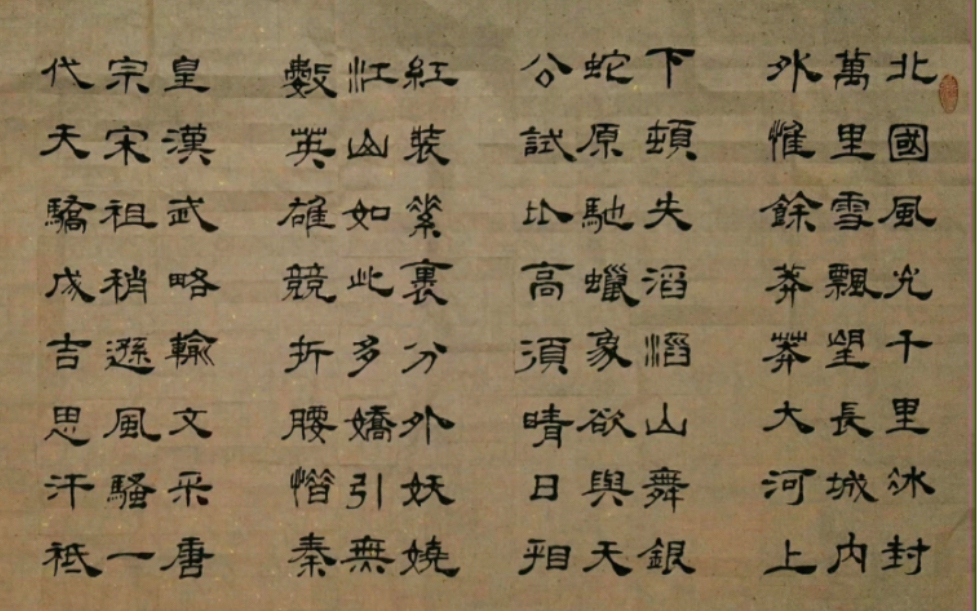 北國風光千里冰封
萬里雪飄望長城內
外惟餘莽莽大河上
下頓失滔滔山舞銀
蛇原馳蠟象欲與天
公試比高須晴日看
紅裝素裹分外妖嬈
江山如此多嬌引無
數英雄競折腰惜秦
皇漢武略輸文采唐
宗宋祖稍遜風騷一
代天驕成吉思汗祗